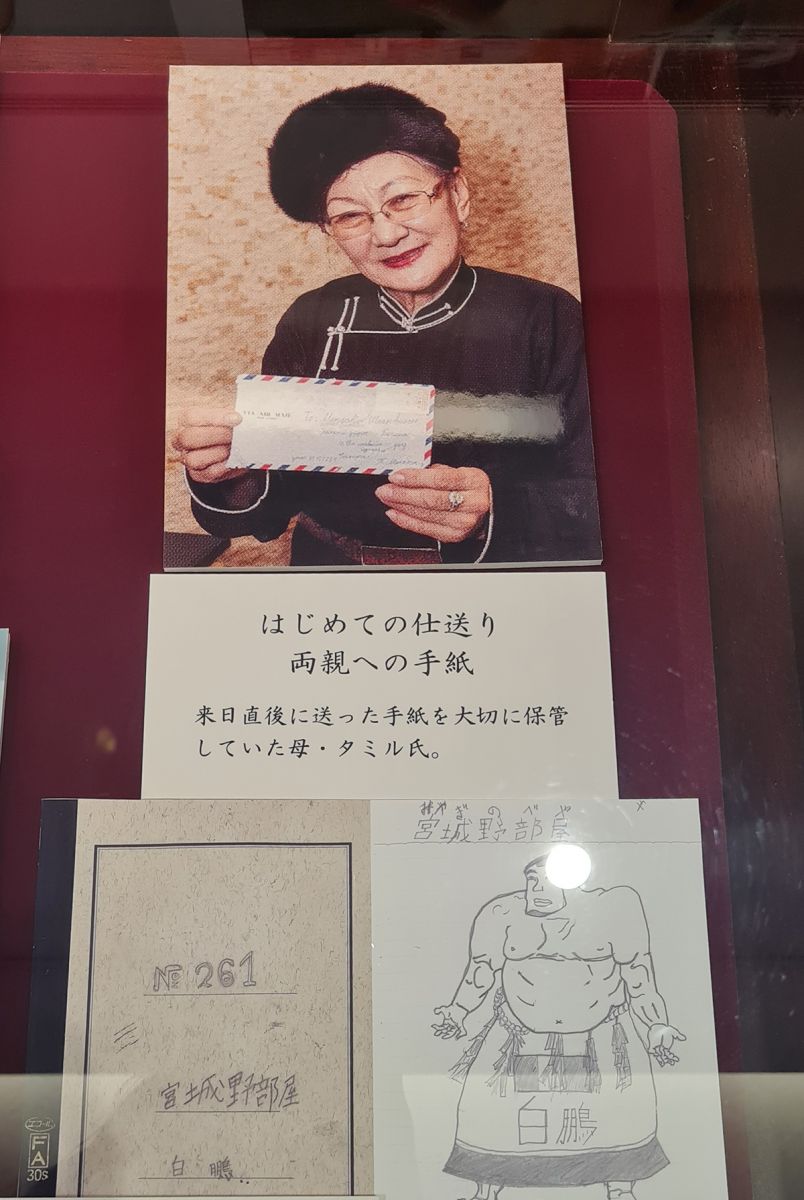 VIA AIR MAIL
To:
はじめての仕送り
両親への手紙
来日直後に送った手紙を大切に保管
していた母・タミル氏。
№ 261
宮城野部屋
白鵬
エコール
FA
30s
みやぎのべや
宮城野部屋
白鵬